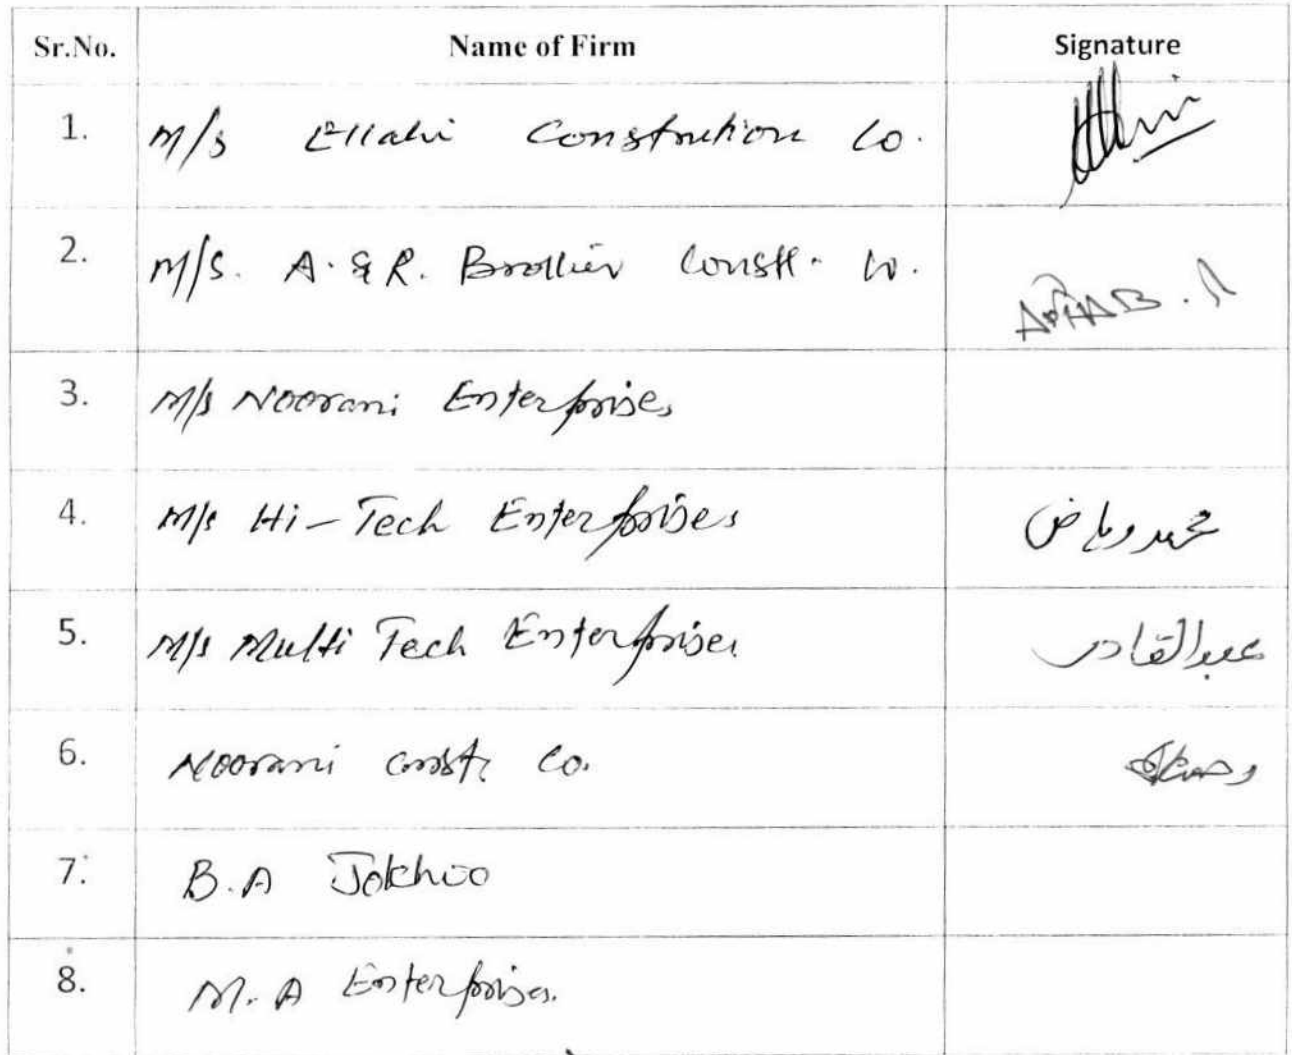 Sr.No. Name of Firm Signature
1. M/s Ellahi Constrution Co.
2. M/S. A. & R. Brother Constt. Co. AFTAB . A
3. M/s Noorani Enterprises
4. M/s Hi-Tech Enterprises محمد ریاض
5. M/s Multi Tech Enterprises عبدالقادر
6. Noorani constt. Co.
7. B.A Jokhio
8. M.A Enterprises.